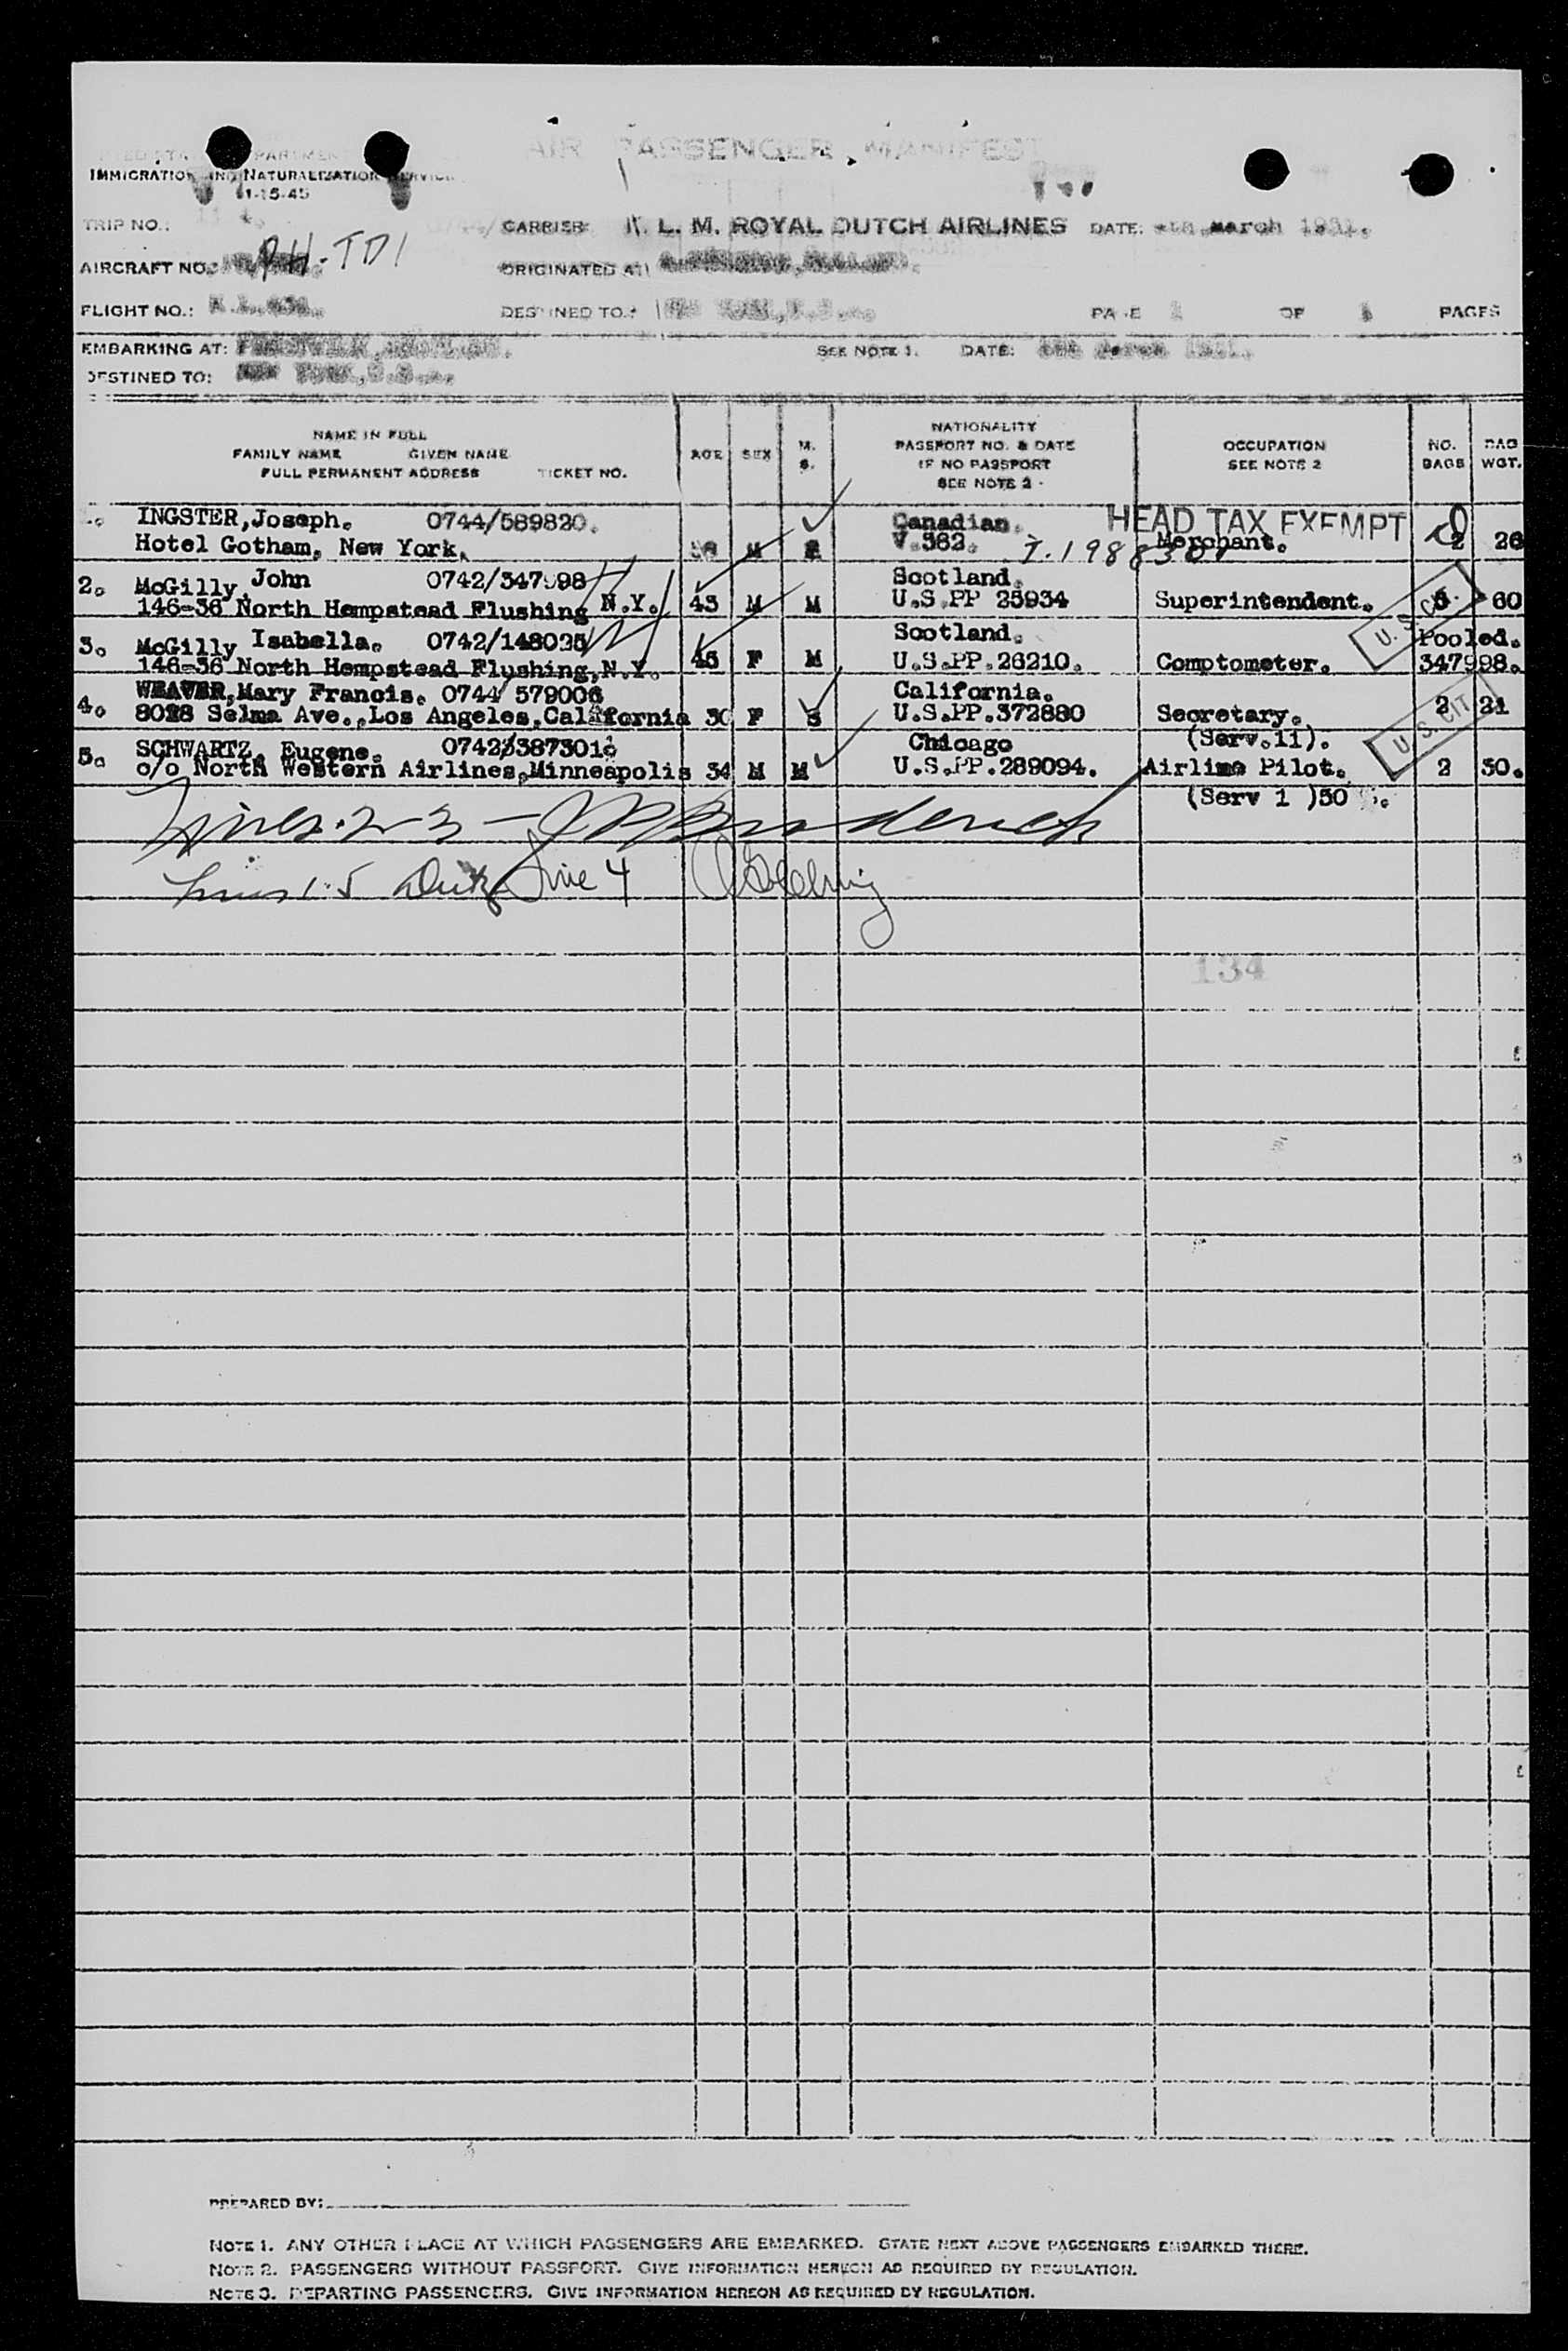 AIR PASSENGER MANIFEST
IMMIGRATION AND NATURALIZATION SERVICE
11-15-45
TRIP NO.: CARRIER K. L. M. ROYAL DUTCH AIRLINES DATE: March
AIRCRAFT NO.: PH-TDI ORIGINATED AT:
FLIGHT NO.: DESTINED TO: PAGE OF PAGES
EMBARKING AT: SEE NOTE 1. DATE:
DESTINED TO: New York,
NAME IN FULL
FAMILY NAME GIVEN NAME
FULL PERMANENT ADDRESS TICKET NO.
AGE SEX M. S.
NATIONALITY
PASSPORT NO. & DATE
IF NO PASSPORT
SEE NOTE 2.
OCCUPATION
SEE NOTE 2
NO. BAGS
BAG WGT.
INGSTER,Joseph. 0744/589820. Canadian. HEAD TAX EXEMPT
Hotel Gotham, New York. M V.362. Merchant. 2 26
2. McGilly, John Scotland.
146-36 North Hempstead Flushing N.Y. 43 M M U.S.PP 25934 Superintendent. 60 U.S. CIT.
3. McGilly Isabella. Scotland. Pooled.
146-36 North Hempstead Flushing,N.Y. 45 F M U.S.PP.26210. Comptometer. 347998.
4. WEAVER,Mary Francis. 0744/579006 California.
Selma Ave.,Los Angeles,California 30 F S U.S.PP.372880 Secretary. 2 21 U.S. CIT
(Serv.11).
5. SCHWARTZ, Eugene. Chicago
c/o North Western Airlines,Minneapolis 34 M M U.S.PP.289094. Airline Pilot. 2 30.
(Serv 1 )30
Lines 2-3
Lines 1.5 Line 4
134
PREPARED BY:
NOTE 1. ANY OTHER PLACE AT WHICH PASSENGERS ARE EMBARKED. STATE NEXT ABOVE PASSENGERS EMBARKED THERE.
NOTE 2. PASSENGERS WITHOUT PASSPORT. GIVE INFORMATION HEREON AS REQUIRED BY REGULATION.
NOTE 3. DEPARTING PASSENGERS. GIVE INFORMATION HEREON AS REQUIRED BY REGULATION.